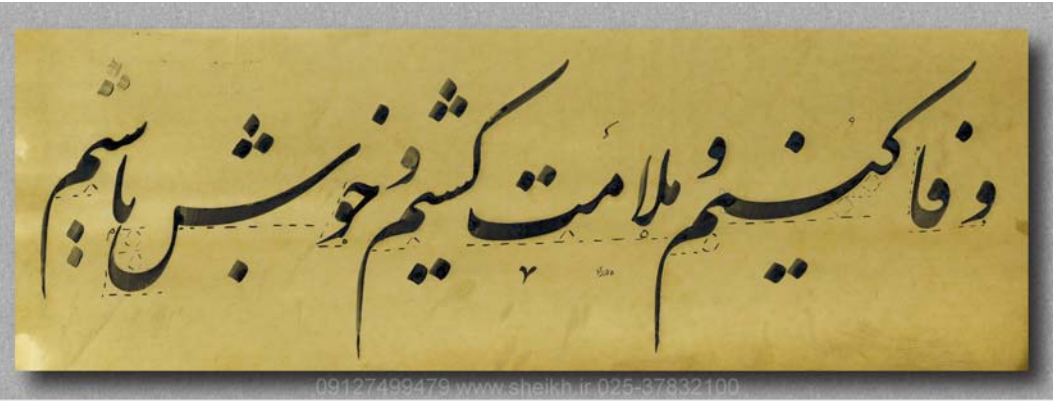 وفا کنیم و ملامت کشیم و خوش باشیم
09127499479 www.sheikh.ir 025-37832100